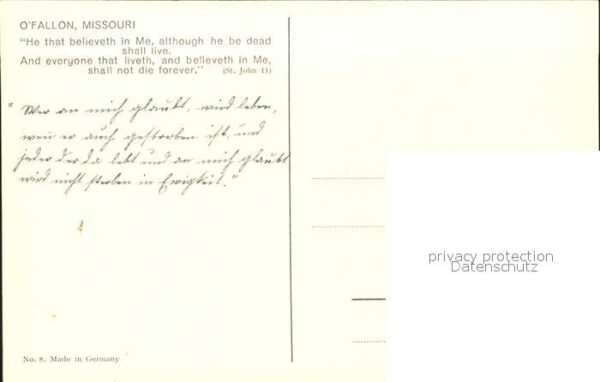 O'FALLON, MISSOURI
"He that believeth in Me, although he be dead
shall live.
And everyone that liveth, and believeth in Me,
shall not die forever." (St. John 11)
"Wer an mich glaubt, wird leben,
wen er auch gestroben ist, und
jeder der da lebt und an mich glaubt
wird nicht sterben in Ewigkeit."
privacy protection
Datenschutz
No. 8. Made in Germany